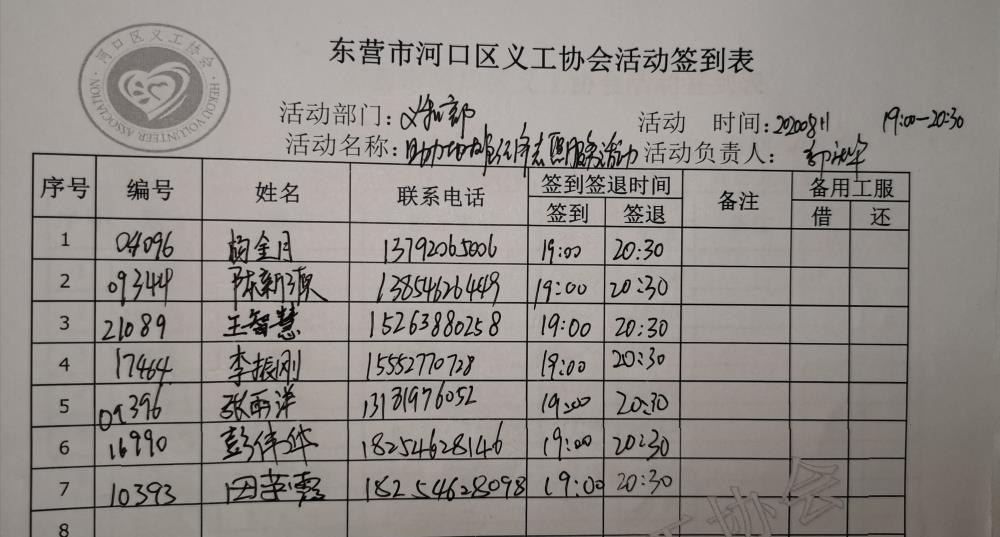 河口区义工协会
HEKOU VOLUNTEER ASSOCIATION
东营市河口区义工协会活动签到表
活动部门:义和部
活动 时间:20200811 19:00-20:30
活动名称: 服务活动
活动负责人:
序号 编号 姓名 联系电话 签到签退时间 备注 备用工服
签到 签退 借 还
1 04096 杨金月 13792065006 19:00 20:30
2 09344 陈新 13854626449 19:00 20:30
3 21089 王智慧 15263880258 19:00 20:30
4 17464 李振刚 15552770728 19:00 20:30
5 09396 张雨洋 13181976052 19:00 20:30
6 16990 彭伟华 18254628146 19:00 20:30
7 10393 田 18254628098 19:00 20:30
8
协会